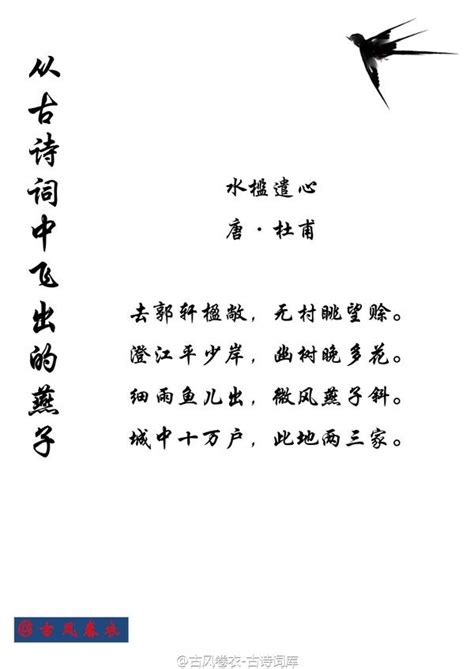 从古诗词中飞出的燕子
水槛遣心
唐·杜甫
去郭轩楹敞，无村眺望赊。
澄江平少岸，幽树晚多花。
细雨鱼儿出，微风燕子斜。
城中十万户，此地两三家。
古风卷衣
@古风卷衣-古诗词库